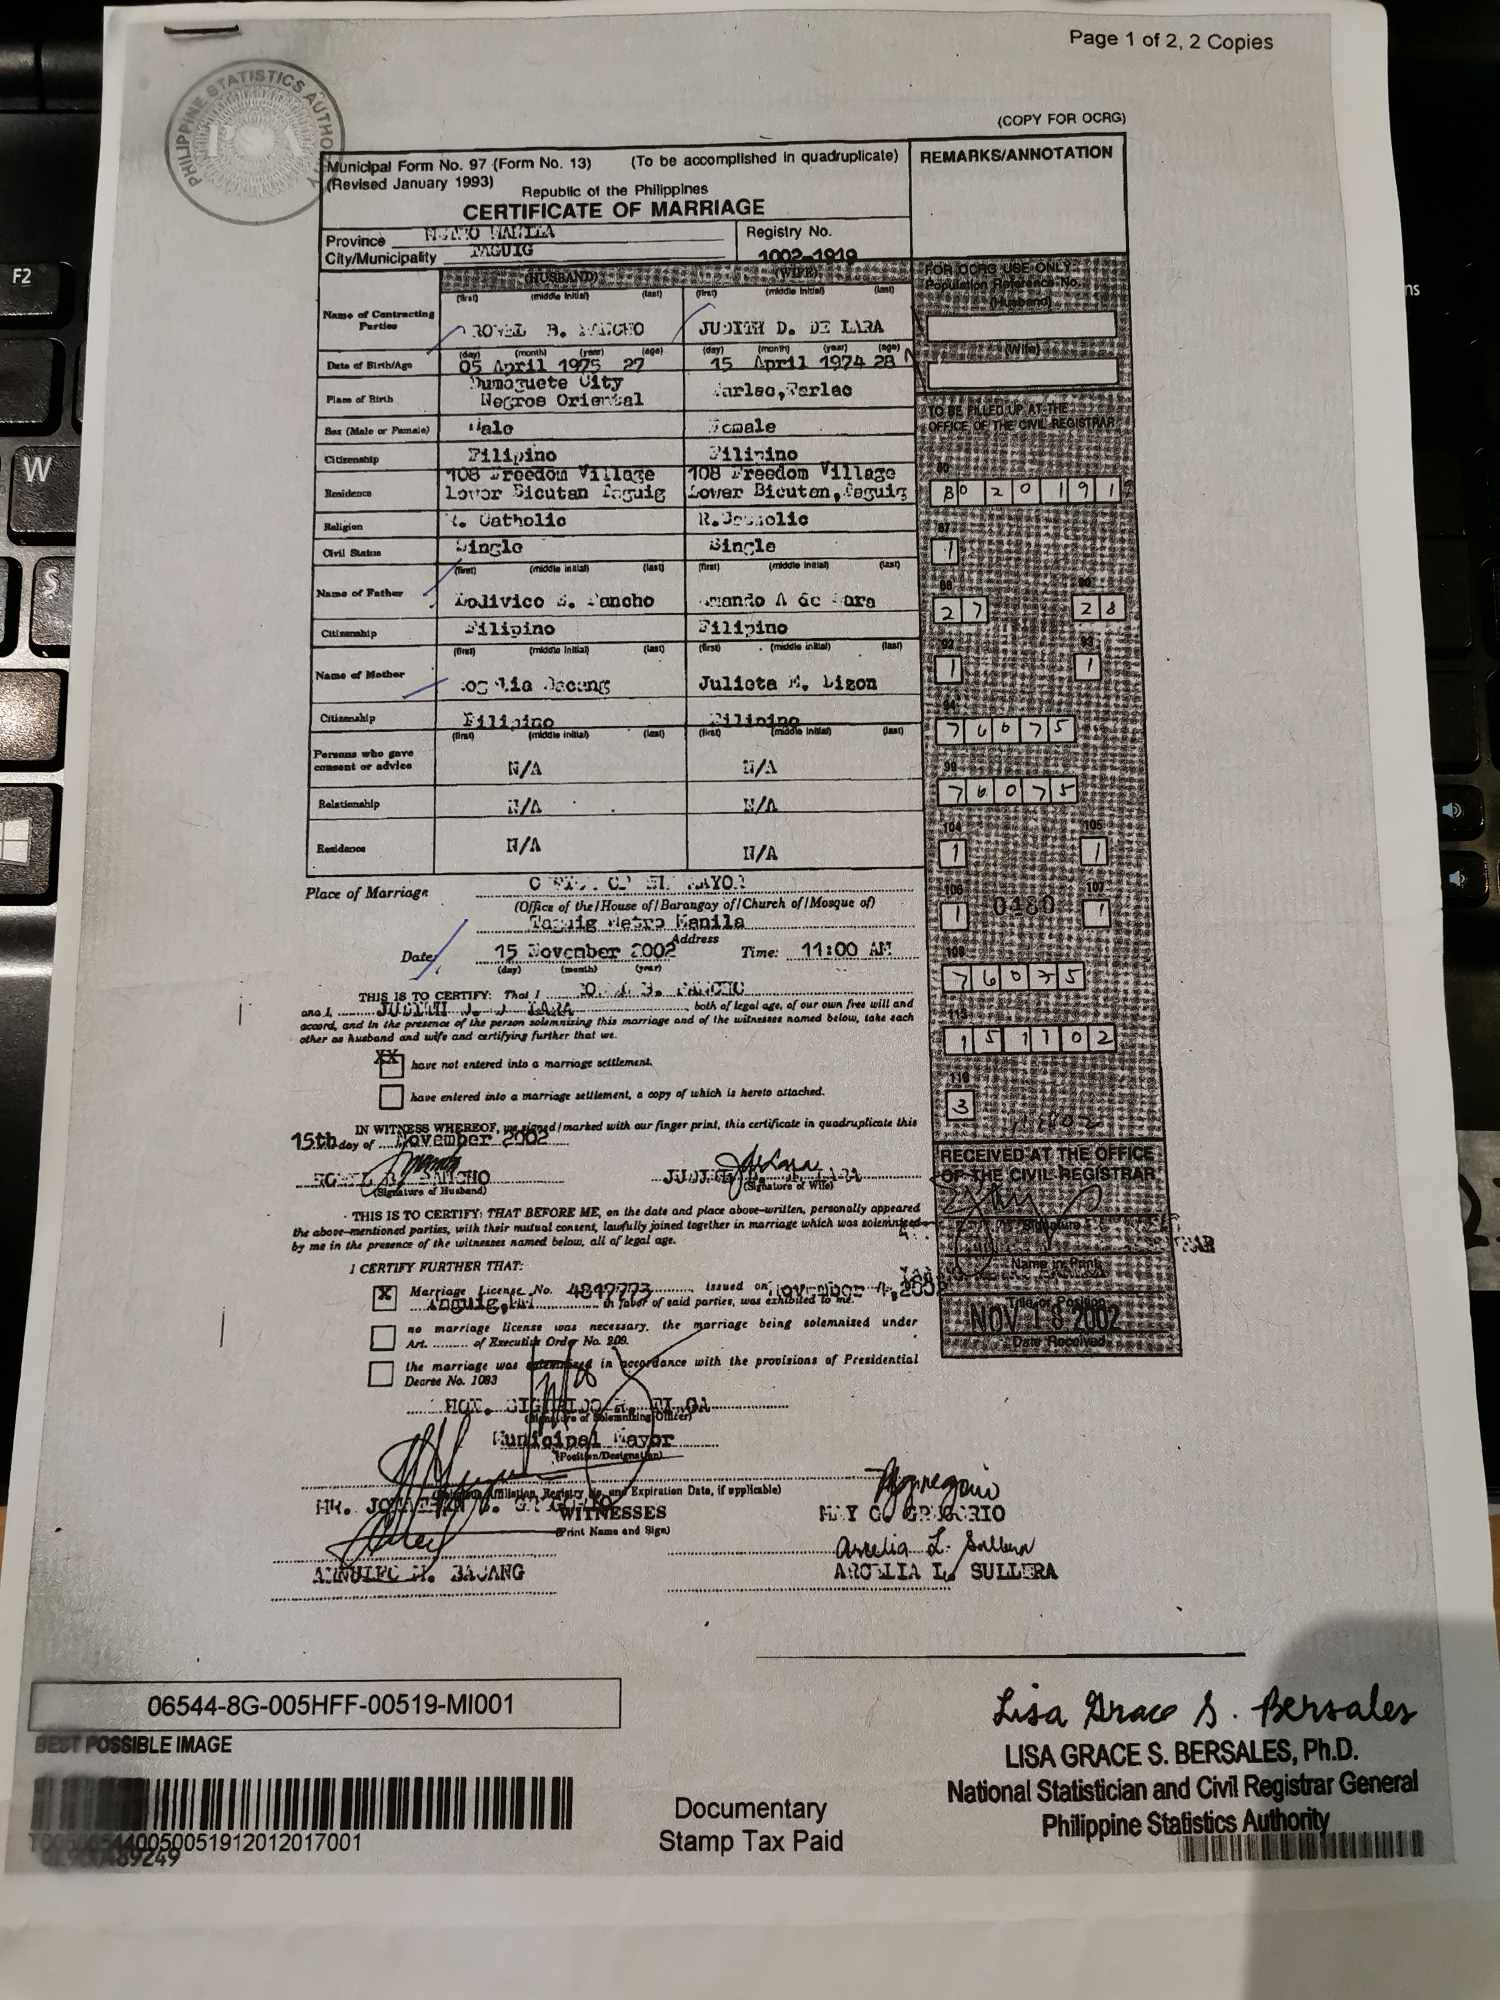 Page 1 of 2, 2 Copies
PHILIPPINE STATISTICS AUTHORITY
(COPY FOR OCRG)
Municipal Form No. 97 (Form No. 13) (To be accomplished in quadruplicate)
(Revised January 1993)
Republic of the Philippines
CERTIFICATE OF MARRIAGE
REMARKS/ANNOTATION
Province METRO MANILA
City/Municipality TAGUIG
Registry No.
1002-1919
(HUSBAND) (WIFE)
FOR OCRG USE ONLY:
Population Reference No.
(Husband)
(Wife)
(first) (middle initial) (last) (first) (middle initial) (last)
Name of Contracting Parties
B. JUDITH D. DE LARA
(day) (month) (year) (age) (day) (month) (year) (age)
Date of Birth/Age 05 April 1975 27 15 April 1974 28
Place of Birth Dumaguete City
Negros Oriental Tarlac,Tarlac
TO BE FILLED UP AT THE
OFFICE OF THE CIVIL REGISTRAR
Sex (Male or Female) Male Female
Citizenship Filipino Filipino
Residence 108 Freedom Village 108 Freedom Village
Lower Bicutan Taguig Lower Bicutan,Taguig
80 20 191
Religion R. Catholic R.Catholic
Civil Status Single Single
87
1
(first) (middle initial) (last) (first) (middle initial) (last)
Name of Father A de Lara
27 28
Citizenship Filipino Filipino
(first) (middle initial) (last) (first) (middle initial) (last)
Name of Mother Julieta M. Lizon
1 1
Citizenship Filipino Filipino
(first) (middle initial) (last) (first) (middle initial) (last)
76075
Persons who gave consent or advice N/A N/A
99
76075
Relationship N/A N/A
104 105
1 1
Residence N/A N/A
Place of Marriage OFFICE OF THE MAYOR
(Office of the/House of/Barangay of/Church of/Mosque of)
106 107
1 0180 1
Taguig Metro Manila
Address
Date: 15 November 2002 Time: 11:00 AM
(day) (month) (year)
76075
THIS IS TO CERTIFY: That I
and I, JUDITH LARA, both of legal age, of our own free will and
accord, and in the presence of the person solemnizing this marriage and of the witnesses named below, take each
other as husband and wife and certifying further that we.
151102
XX have not entered into a marriage settlement.
have entered into a marriage settlement, a copy of which is hereto attached.
3
IN WITNESS WHEREOF, we signed/marked with our finger print, this certificate in quadruplicate this
15th day of November 2002
(Signature of Husband) (Signature of Wife)
RECEIVED AT THE OFFICE
OF THE CIVIL REGISTRAR
Signature
Name in Print
Title or Position
NOV 18 2002
Date Received
THIS IS TO CERTIFY: THAT BEFORE ME, on the date and place above-written, personally appeared
the above-mentioned parties, with their mutual consent, lawfully joined together in marriage which was solemnized
by me in the presence of the witnesses named below, all of legal age.
I CERTIFY FURTHER THAT:
X Marriage License No. 4849773, issued on November 4,2002
Taguig,MM in favor of said parties, was exhibited to me.
no marriage license was necessary, the marriage being solemnized under
Art. of Executive Order No. 209.
the marriage was solemnized in accordance with the provisions of Presidential
Decree No. 1083
HON.
(Signature of Solemnizing Officer)
Municipal Mayor
(Position/Designation)
Registry No. and Expiration Date, if applicable)
WITNESSES
(Print Name and Sign)
MAY C. GREGORIO
Arcelia L. Sullera
ARCELIA L. SULLERA
06544-8G-005HFF-00519-MI001
BEST POSSIBLE IMAGE
Documentary
Stamp Tax Paid
Lisa Grace S. Bersales
LISA GRACE S. BERSALES, Ph.D.
National Statistician and Civil Registrar General
Philippine Statistics Authority
F2
W
S